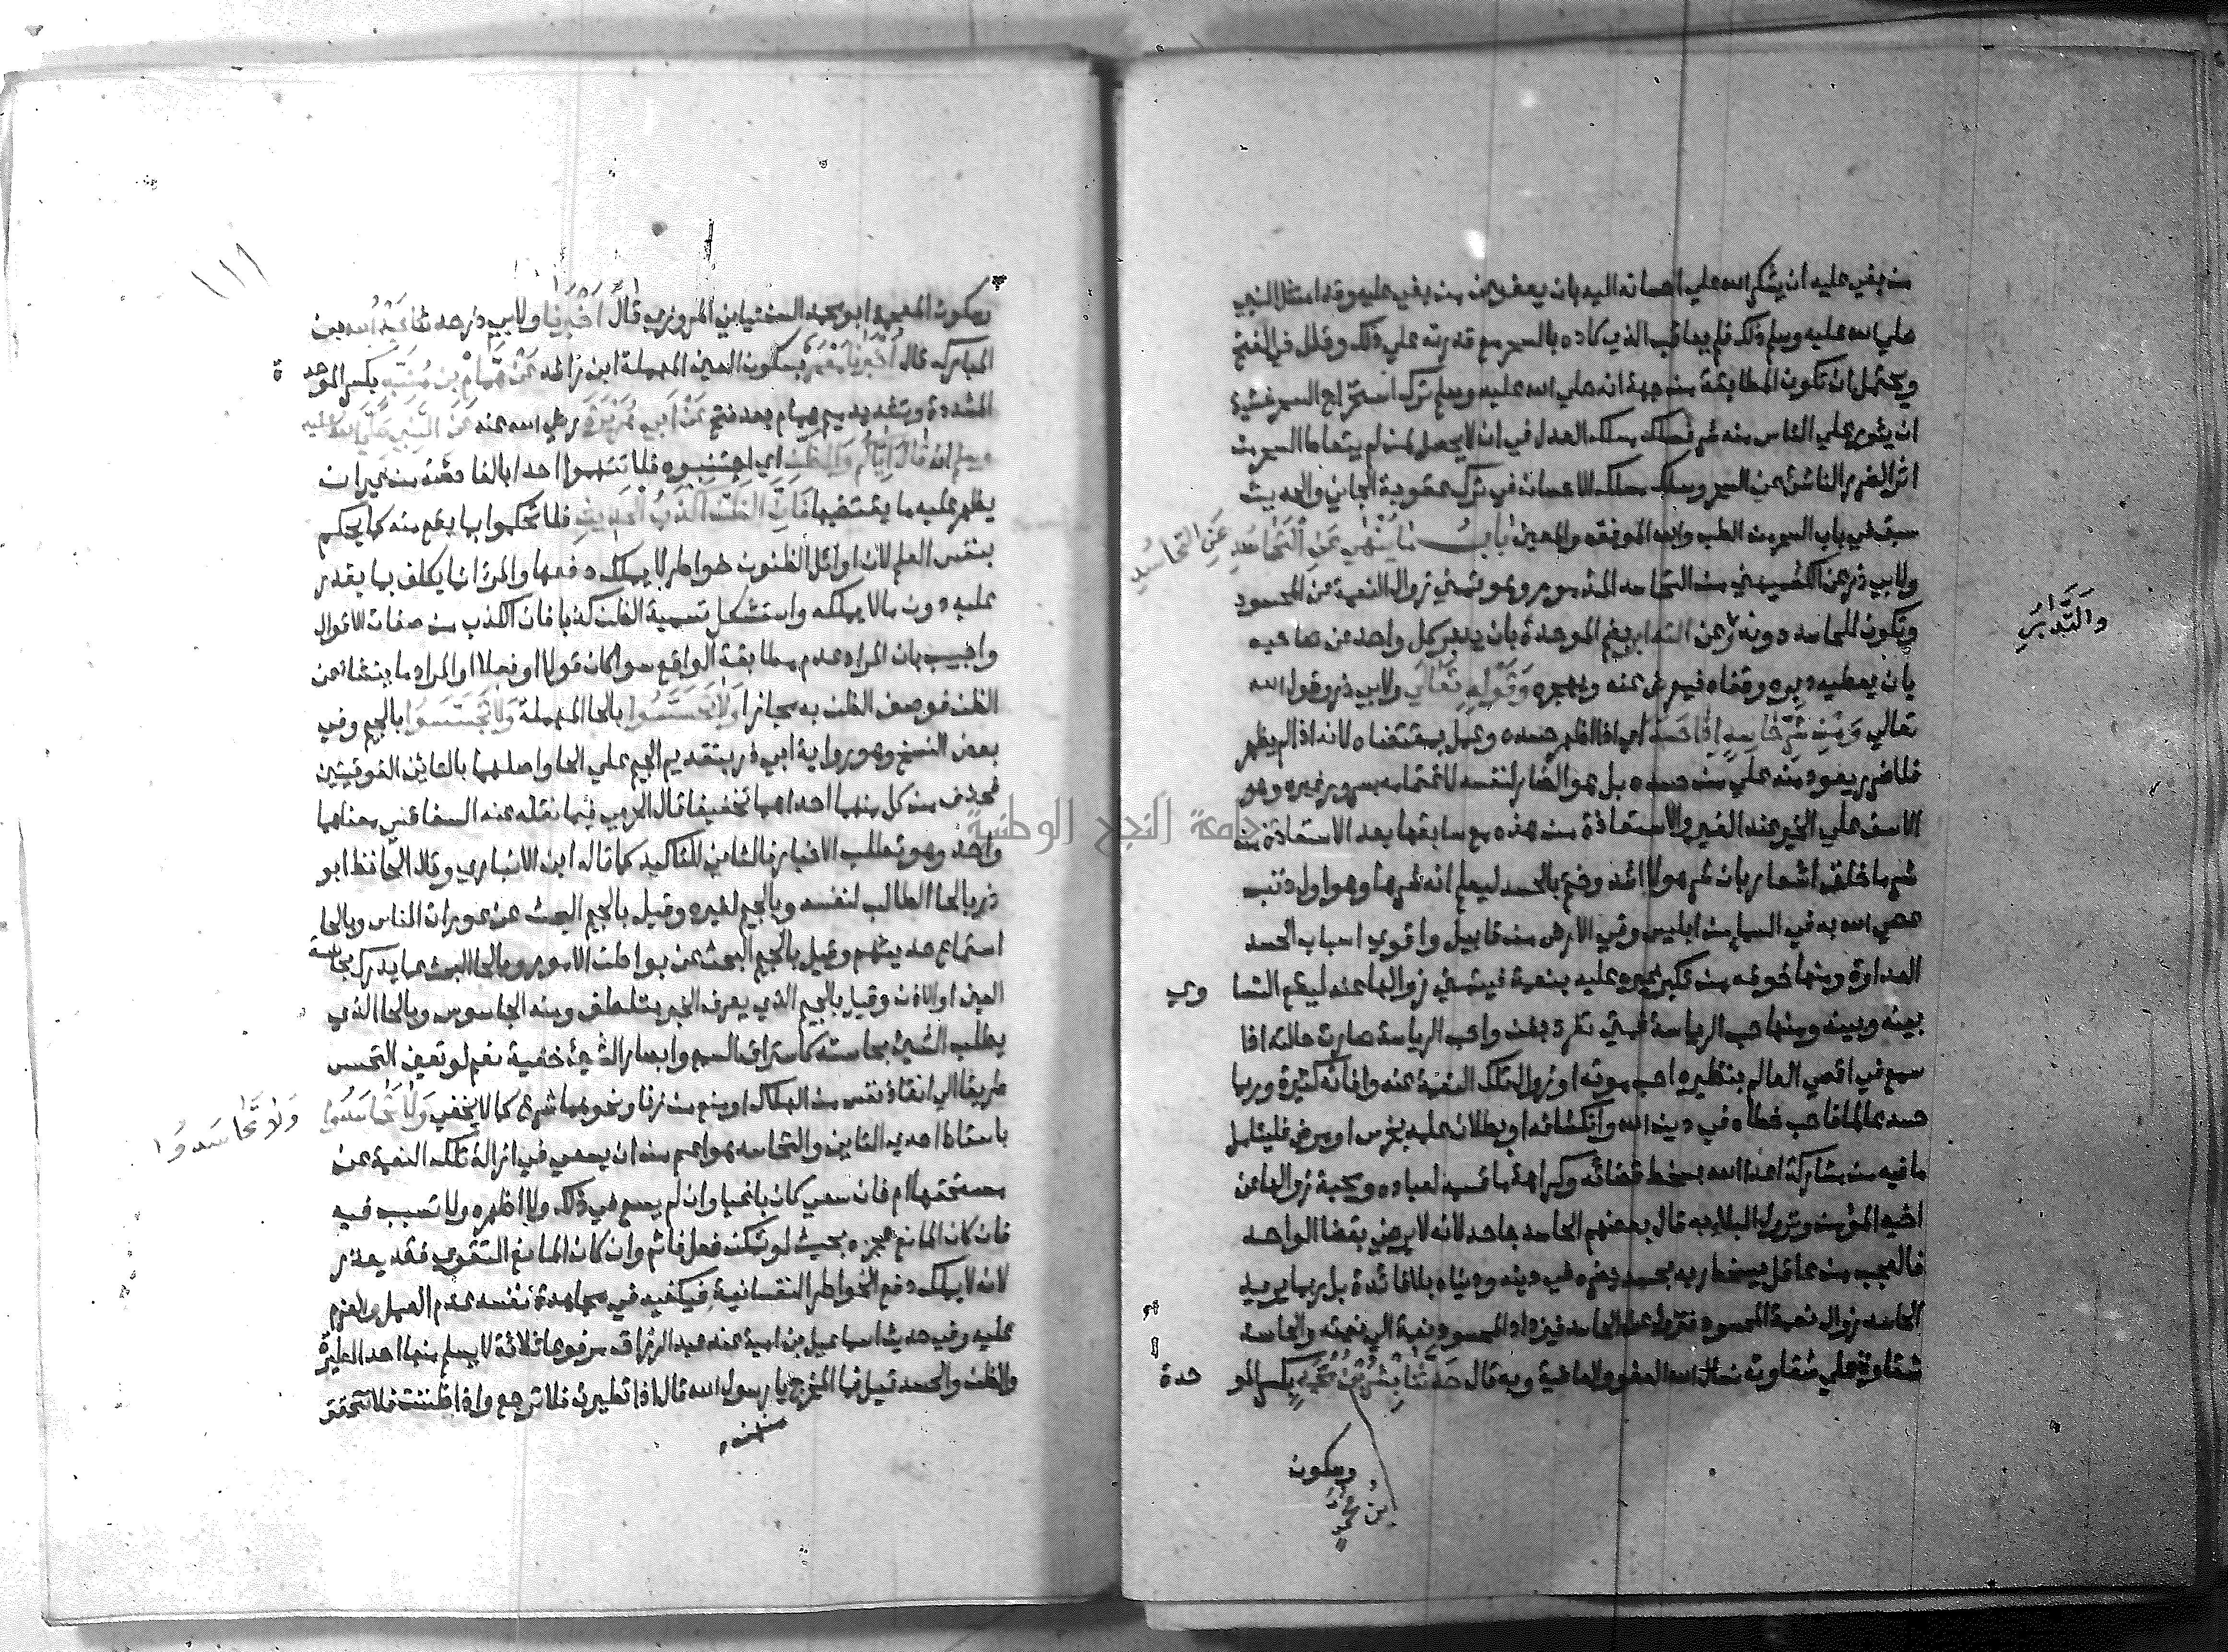 من بغي عليه ان يشكر الله علي احسانه اليه بان يعفو عمن بغي عليه وقد امتثل النبي
صلي الله عليه وسلم ذلك فلم يعاقب الذي كاده بالسحر مع قدرته علي ذلك وقال في الفتح
ويحتمل ان تكون المطابقة من جهة انه صلي الله عليه وسلم ترك استخراج السحر خشية
ان يثور علي الناس منه شر فسلك مسلك العدل في ان لا يحصل لمن لم يتعاط السحر من
اثر الضرر الناشئ عن السحر وسلك مسلك الاحسان في ترك عقوبة الجاني والحديث
سبق في باب السحر من الطب والله الموفق والمعين باب ما ينهي عن التحاسد
عن التحاسد
ولابي ذر عن الكشميهني من التحاسد المذموم وهو تمني زوال النعمة عن المحسود
وتكون للحاسد دونه وعن التدابر بضم الموحدة بان يدبر كل واحد عن صاحبه
والتدابر
بان يعطيه دبره وقفاه فيعرض عنه ويهجره وقوله تعالي ولابي ذر وقول الله
تعالي ومن شر حاسد اذا حسد اي اذا اظهر حسده وعمل بمقتضاه لانه اذا لم يظهر
فلا ضرر يعود منه علي من حسده بل هو الضار لنفسه لاغتمامه بسرور غيره وهو
الاسف علي الخير عند الغير والاستعاذة من هذه مع سابقها بعد الاستعاذة من
شر ما خلق اشعار بان شر هولا اشد وختم بالحسد ليعلم انه شرها وهو اول ذنب
عصي الله به في السما من ابليس وفي الارض من قابيل واقوي اسباب الحسد
العداوة ومنها خوفه من تكبر غيره عليه بنعمة فيتمني زوالها عنه ليقع التسا وي
بينه وبينه ومنها حب الرياسة فمتي تفرد بفن واحب الرياسة صارت حالته اذا
سمع في اقصي العالم بنظيره احب موته او زوال تلك النعمة عنه وافاته كثيرة وربما
حسد عالما فاحب خطاه في دين الله وانكشافه او بطلان علمه بخرس او مرض فليتامل
ما فيه من مشاركة اعدا الله بسخط قضائه وكراهة ما قسمه لعباده ومحبة زوالها عن
اخيه المؤمن ونزول البلا به قال بعضهم الحاسد جاحد لانه لا يرضي بقضا الواحد
فالعجب من عاقل يسخط ربه بحسد يضره في دينه ودنياه بلا فائدة بل ربما يريد
الحاسد زوال نعمة المحسود فتزول عن الحاسد فيزداد المحسود نعمة الي نعمته والحاسد
شقاوة علي شقاوته نسال الله العفو والعافية وبه قال حدثنا بشر بن محمد بكسر المو حدة
وسكون
بن محمد
١١١
وسكون المعجمة ابو محمد السختياني المروزي قال اخبرنا ولابي ذر حدثنا عبد الله بن
المبارك قال اخبرنا معمر بسكون العين المهملة ابن راشد عن همام بن منبه بكسر الموحد ة
المشددة وتشديد ميم همام بعد فتح عن ابي هريرة رضي الله عنه عن النبي صلي الله عليه
وسلم انه قال اياكم والظن اي اجتنبوه فلا تتهموا احدا بالفاحشة من غير ان
يظهر عليه ما يقتضيها فان الظن اكذب الحديث فلا تحكموا بما يقع منه كما يحكم
بنفس العلم لان اوائل الظنون خواطر لا يملك دفعها والمرء انما يكلف بما يقدر
عليه دون ما لا يملكه واستشكل تسمية الظن كذبا فان الكذب من صفات الاقوال
واجيب بان المراد عدم مطابقة الواقع سوا كان قولا او فعلا او المراد ما ينشا عن
الظن فوصف الظن به مجازا ولا تحسسوا بالحا المهملة ولا تجسسوا بالجيم وفي
بعض النسخ وهو رواية ابي ذر بتقديم الجيم علي الحا واصلهما بالتائين الفوقيتين
فحذف من كل منهما احداهما تخفيفا قال الحربي فيما نقله عنه السفاقسي معناهما
واحد وهو تطلب الاخبار فالثاني للتاكيد كما قاله ابن الانباري وقال الحافظ ابو
ذر بالحا الطالب لنفسه وبالجيم لغيره وقيل بالجيم البحث عن عورات الناس وبالحا
استماع حديثهم وقيل بالجيم البحث عن بواطن الامور وبالحا البحث عما يدرك بحاسة
العين او الاذن وقيل بالجيم الذي يعرف الخبر بتلطف ومنه الجاسوس وبالحا الذي
يطلب الشيئ بحاسته كاستراق السمع وابصار الشيئ خفية نعم لو تعين التجسس
طريقا الي انقاذ نفس من الهلاك او منع من زنا ونحوهما شرع كما لا يخفي ولا تحاسدوا
ولا تحاسدوا
باسقاط احدي التاين والتحاسد هو اعم من ان يسعي في ازالة تلك النعمة عن
مستحقها ام لا فان سعي كان باغيا وان لم يسع في ذلك ولا اظهره ولا تسبب فيه
فان كان المانع عجزه بحيث لو تمكن فعل فاثم وان كان المانع التقوي فقد يعذر
لانه لا يملك دفع الخواطر النفسانية فيكفيه في مجاهدة نفسه عدم العمل والعزم
عليه وفي حديث اسماعيل بن امية عند عبد الرزاق مرفوعا ثلاثة لا يسلم منها احد الطيرة
والظن والحسد قيل فما المخرج يا رسول الله قال اذا تطيرت فلا ترجع واذا ظننت فلا تحقق
جامعة النجاح الوطنية